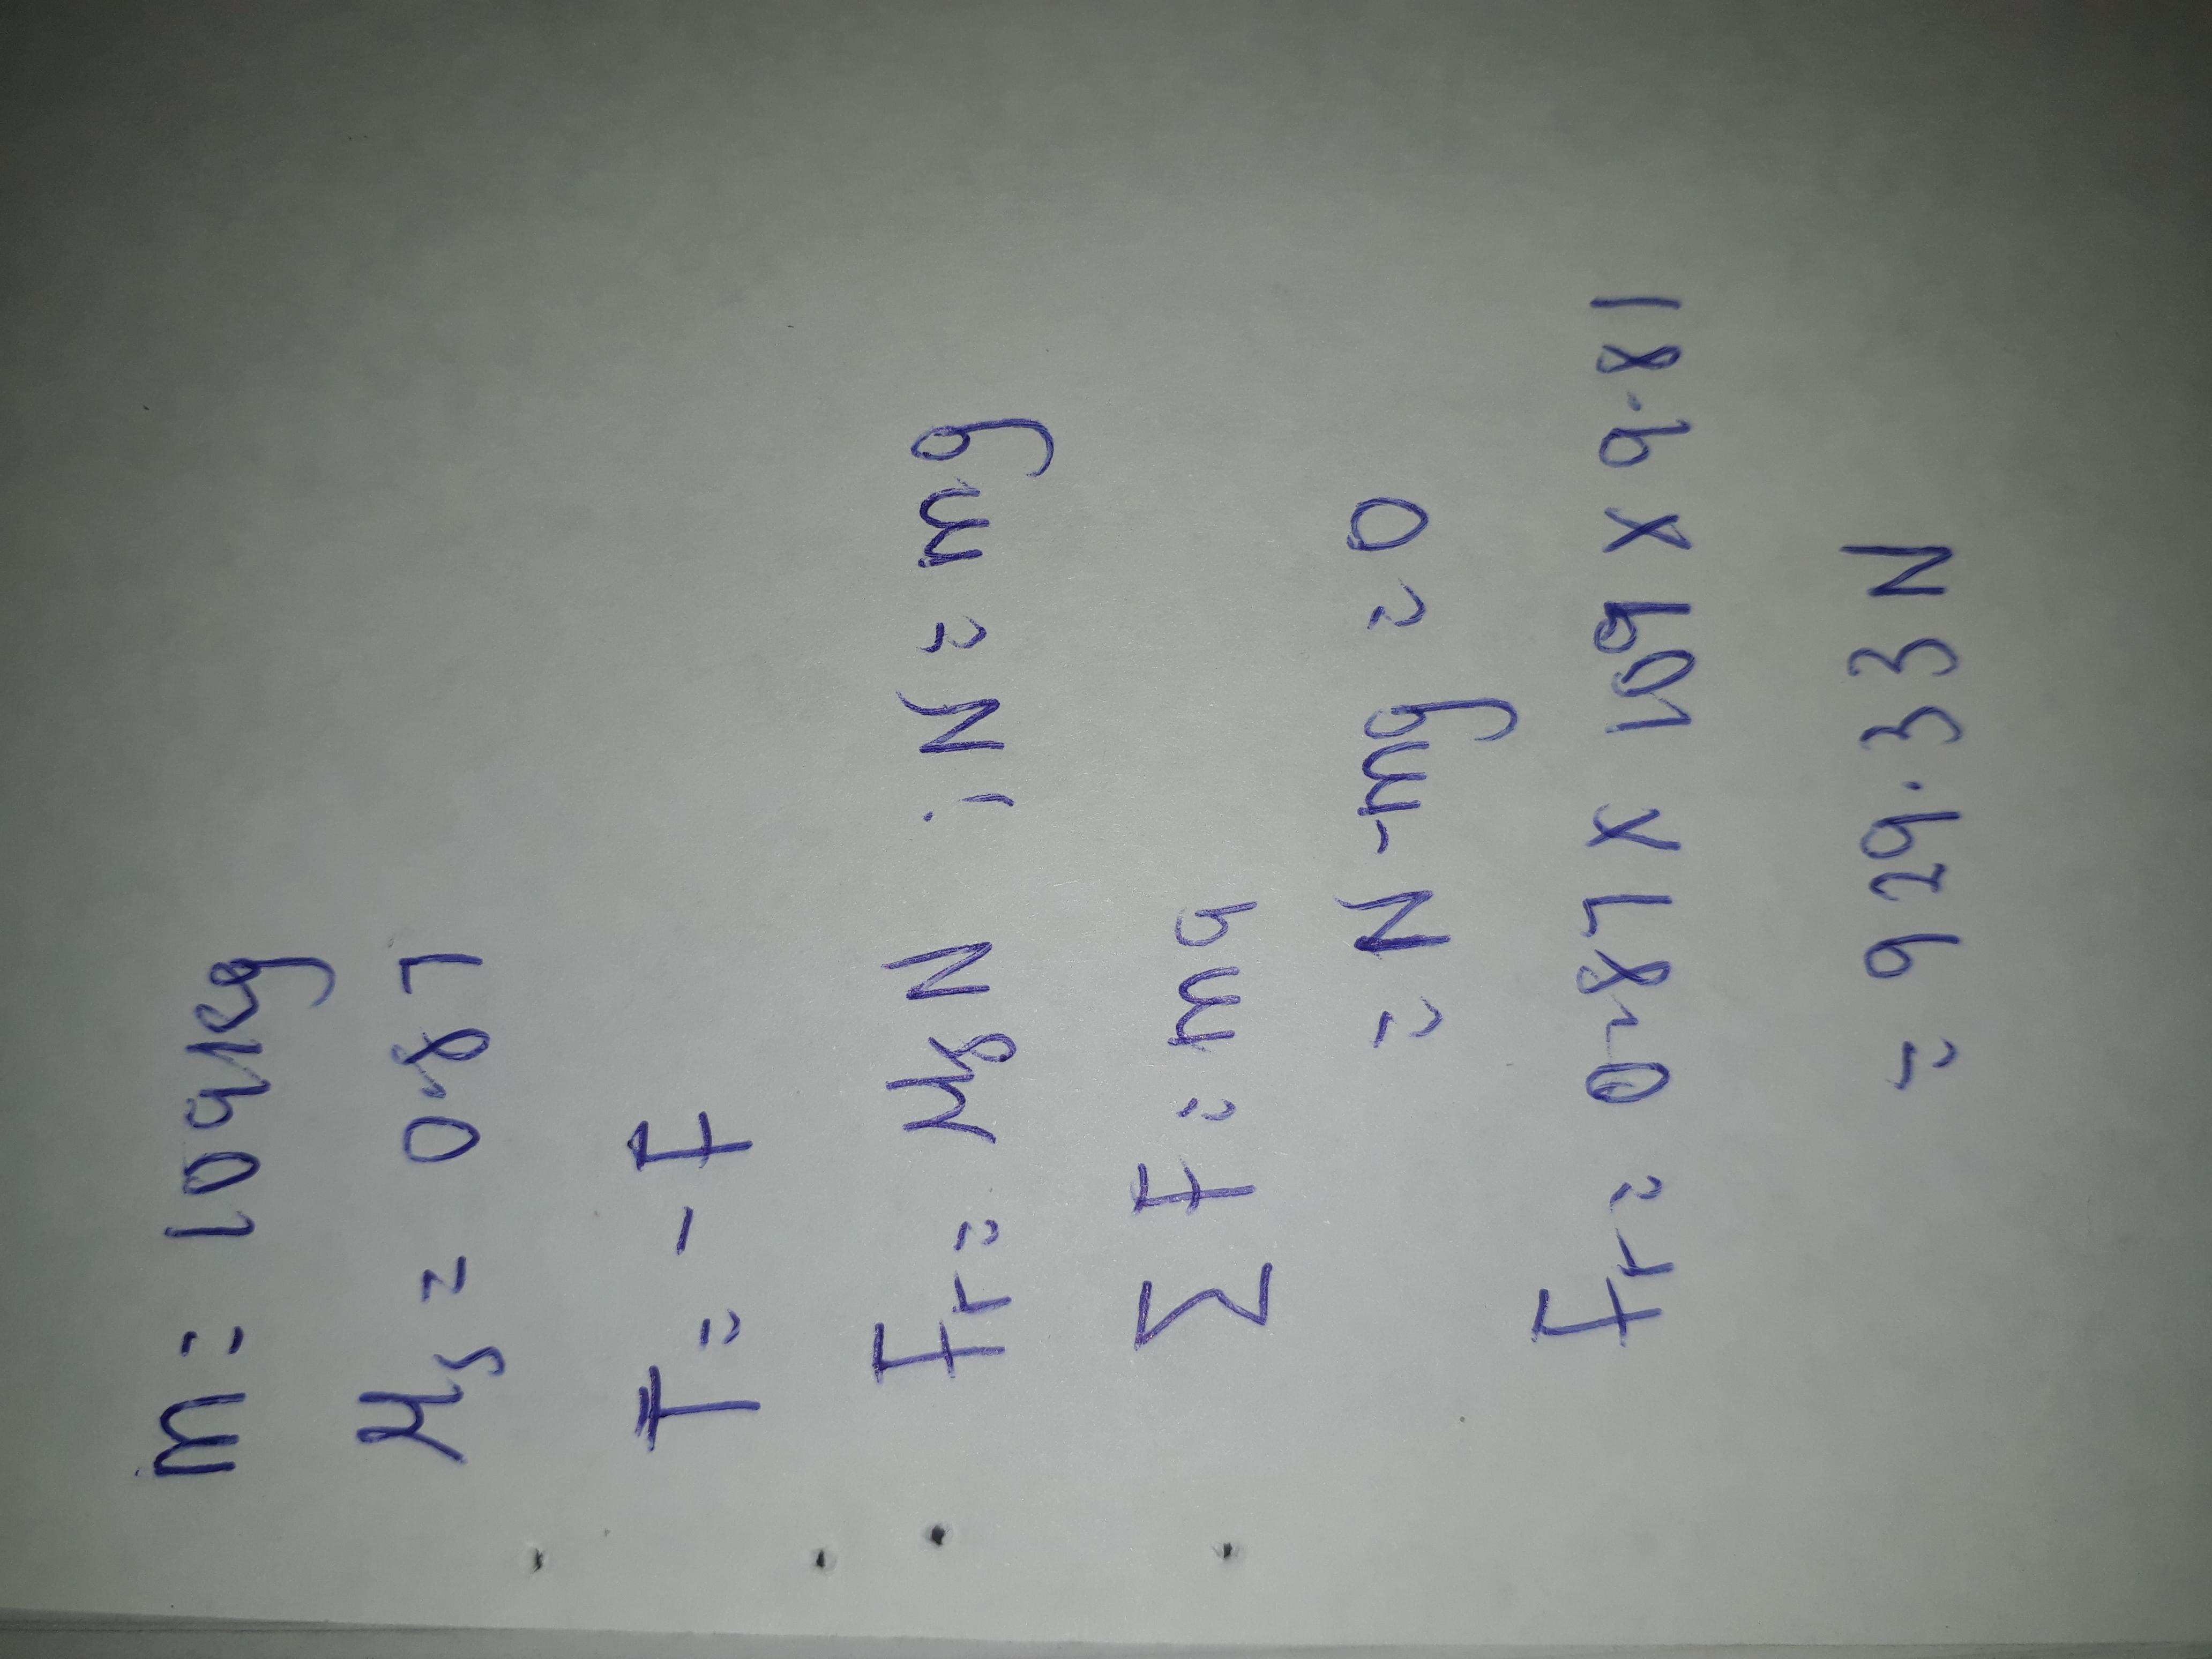 m = 109kg
μs = 0.87
T = - F
Fr = μsN ; N = mg
Σ F = ma
= N - mg = 0
Fr = 0.87 x 109 x 9.81
= 929.33N